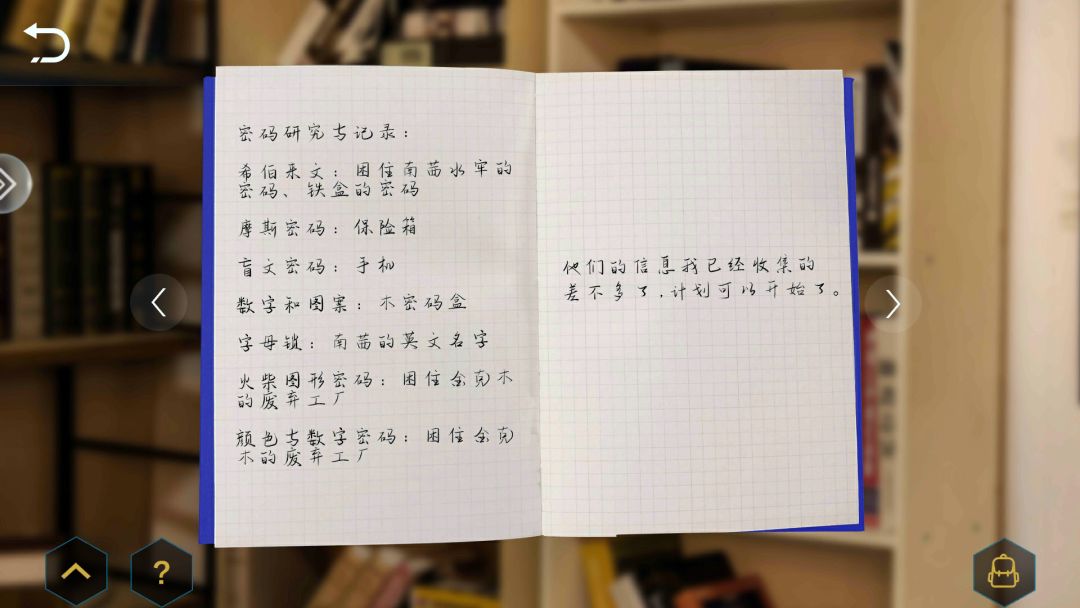 密码研究与记录：
希伯来文：困住南茜水牢的
密码、铁盒的密码
摩斯密码：保险箱
盲文密码：手机
数字和图案：木密码盒
字母锁：南茜的英文名字
火柴图形密码：困住全克木
的废弃工厂
颜色与数字密码：困住全克
木的废弃工厂
他们的信息我已经收集的
差不多了，计划可以开始了。
?